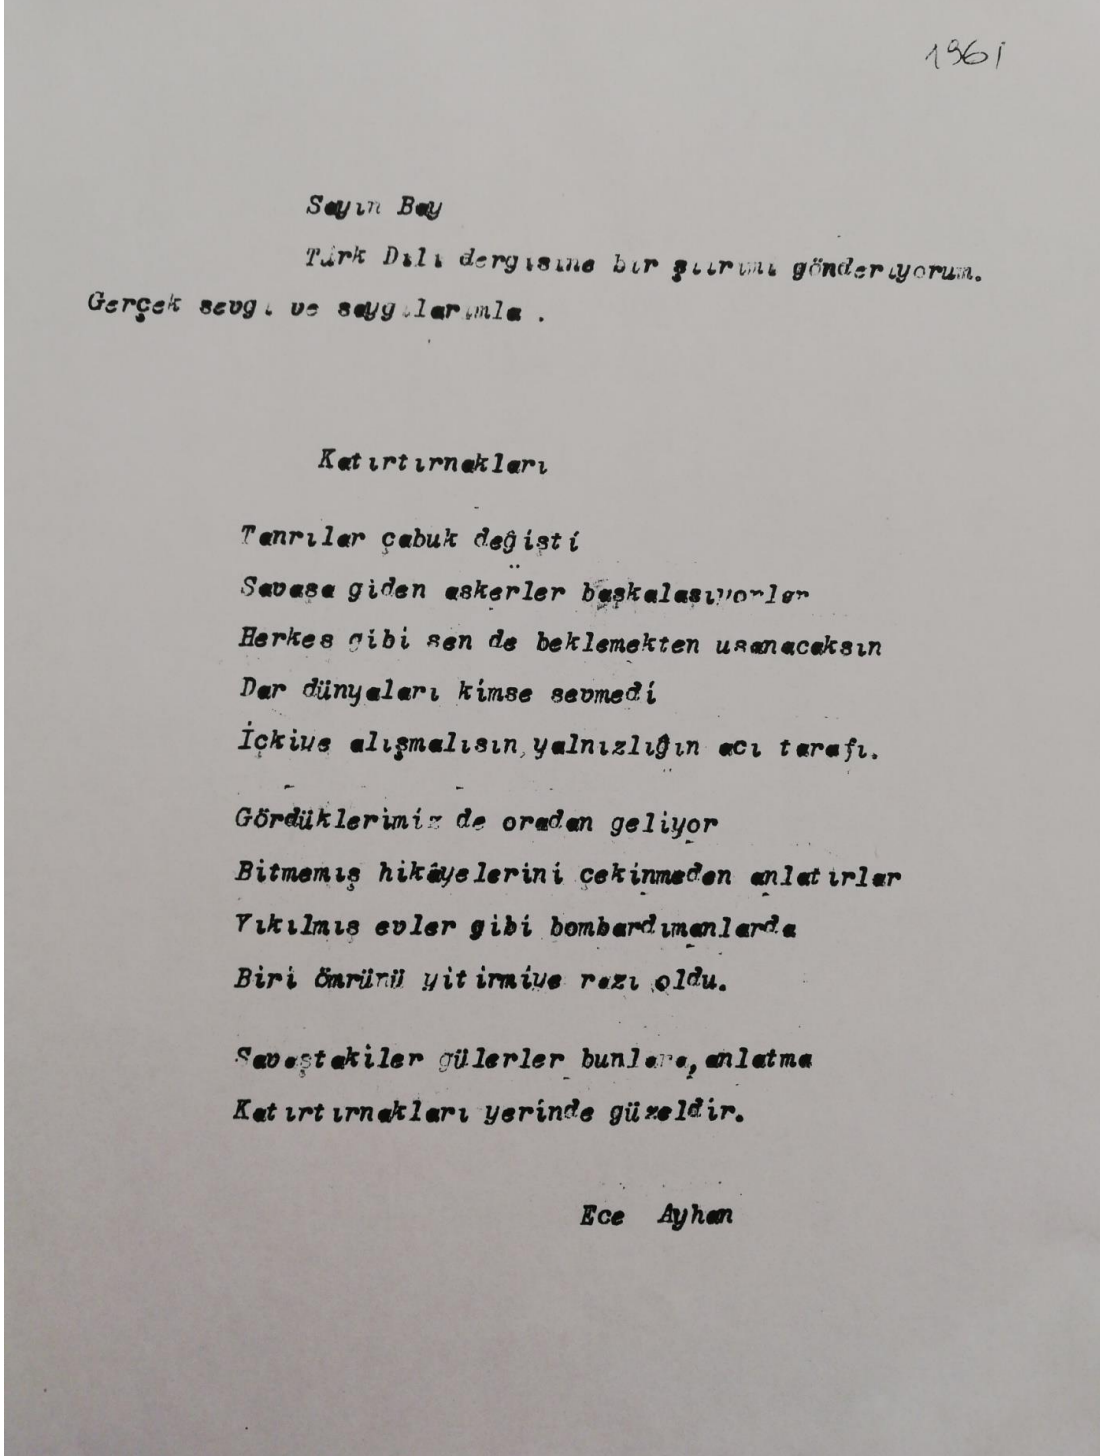 1961
Sayın Bay
Türk Dili dergisine bir şiirimi gönderiyorum.
Gerçek sevgi ve saygılarımla .
Katırtırnakları
Tanrılar çabuk değişti
Savaşa giden askerler başkalaşıyorlar
Herkes gibi sen de beklemekten usanacaksın
Dar dünyaları kimse sevmedi
İçkiye alışmalısın,yalnızlığın acı tarafı.
Gördüklerimiz de oradan geliyor
Bitmemiş hikâyelerini çekinmeden anlatırlar
Yıkılmış evler gibi bombardımanlarda
Biri ömrünü yitirmiye razı oldu.
Savaştakiler gülerler bunlara,anlatma
Katırtırnakları yerinde güzeldir.
Ece Ayhan